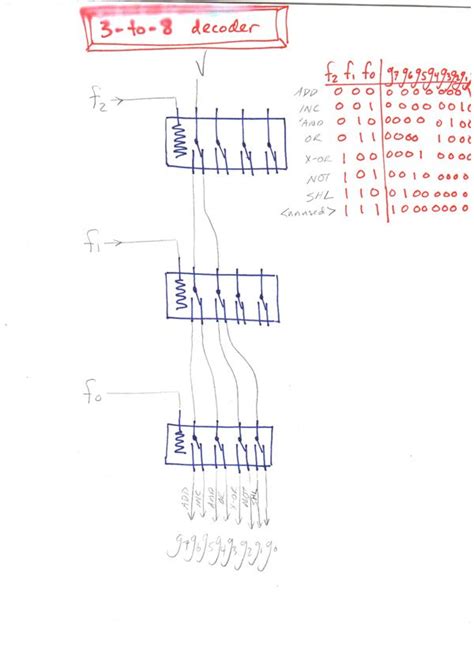 3-to-8 decoder
V
f2
f1
f0
f2 f1 f0 g7 g6 g5 g4 g3 g2 g1
ADD 0 0 0
INC 0 0 1 0000
AND 0 1 0 0000 0100
OR 0 1 1 0000 1000
X-OR 1 0 0 0001 0000
NOT 1 0 1
SHL 1 1 0 0100 0000
<unused> 1 1 1 1000 0000
ADD INC AND OR X-OR NOT SHL
g7 g6 g5 g4 g3 g2 g1 g0